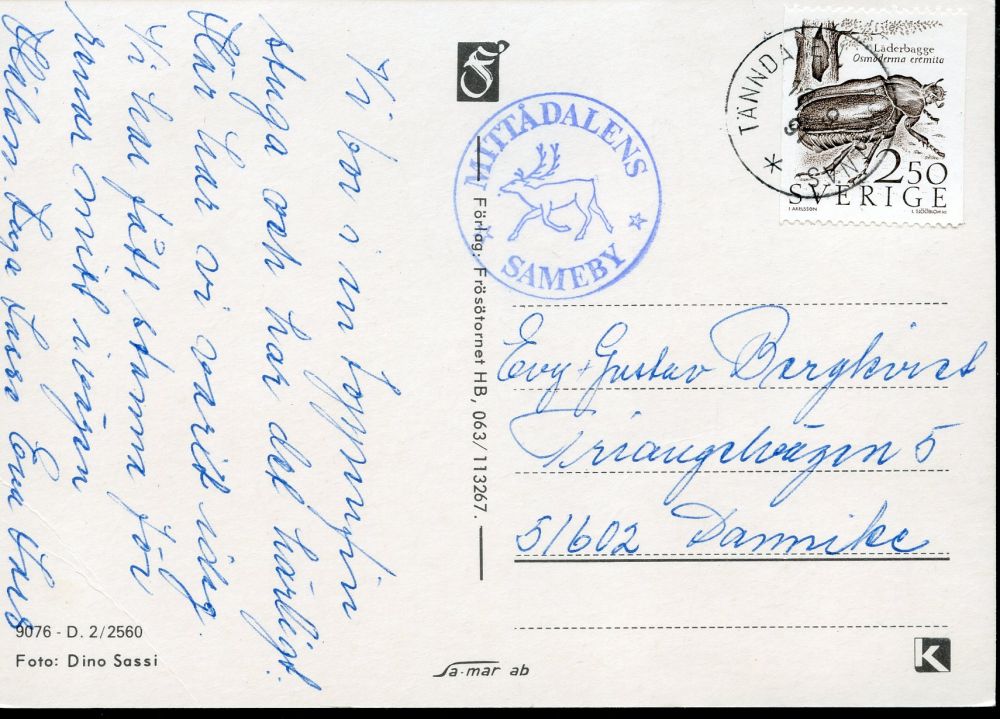 Vi bor i en toppenfin
stuga och har det härligt.
Här har vi varit idag.
Vi har fått stanna för
renar mitt i vägen
Hälsn. Inga Lasse Eva Lars
9076 - D. 2/2560
Foto: Dino Sassi
Förlag: Frösötornet HB, 063/113267.
Sa-mar ab
MITTÅDALENS
SAMEBY
TÄNNDALEN
Läderbagge
Osmoderma eremita
2.50
SVERIGE
I. AXELSSON
L. SJÖÖBLOM SC
Evy + Gustav Bergkvist
Triangelvägen 5
51602 Dannike
K